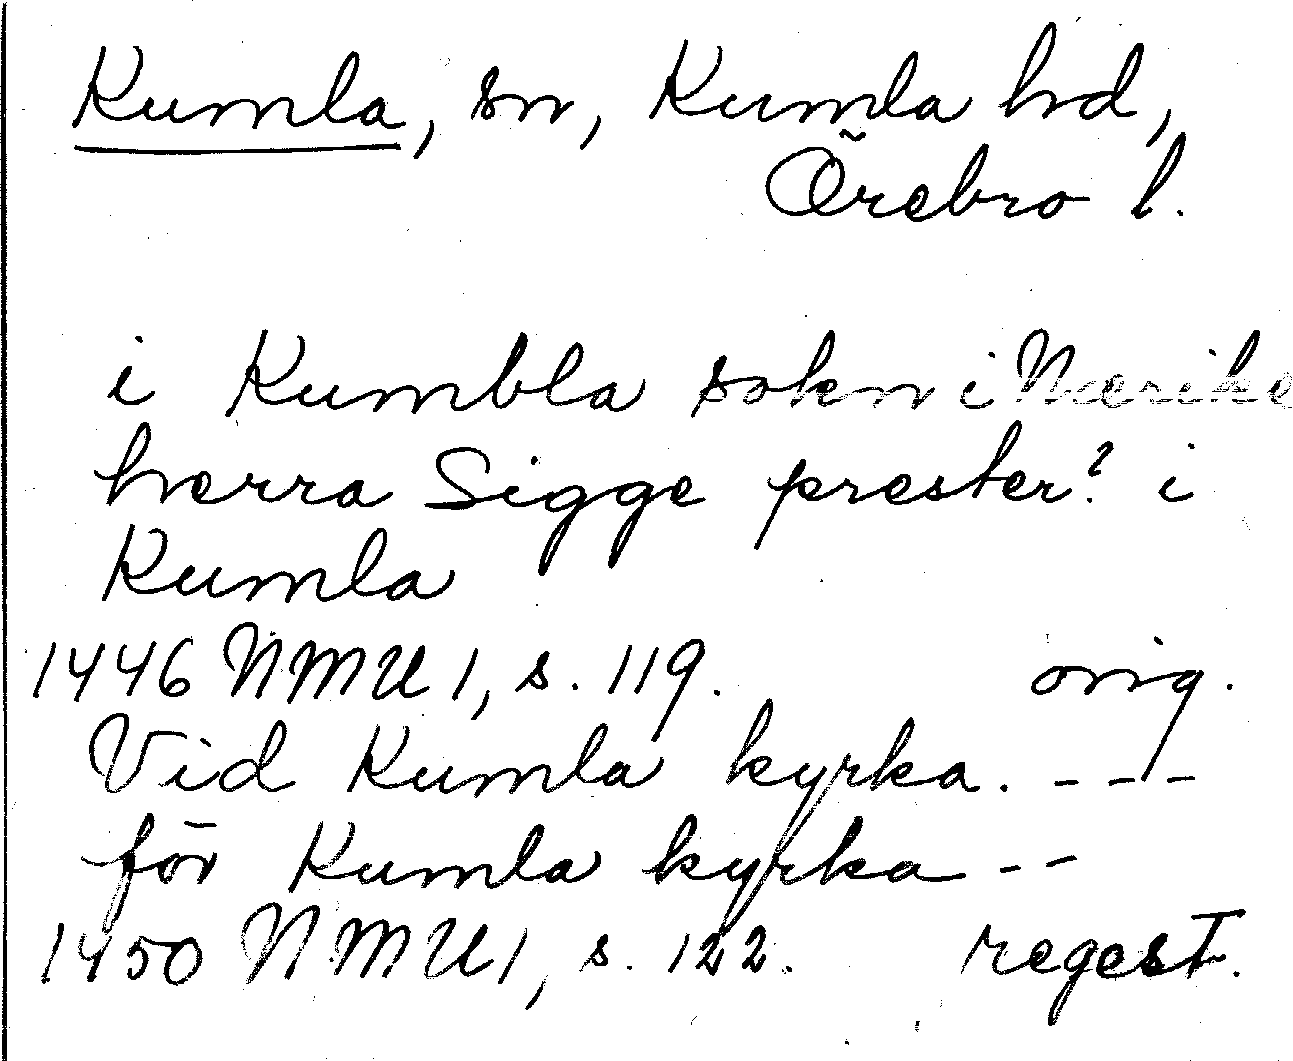 Kumla, sn, Kumla hd,
Örebro l.
i Kumbla sokn i Nærike
herra Sigge prester? i
Kumla
1446 NMU 1, s. 119. orig.
Vid Kumla kyrka. - - -
för Kumla kyrka - -
1450 NMU 1, s. 122. regest.